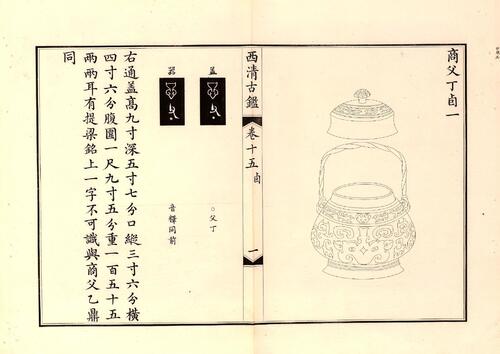 商父丁卣一
西清古鑑 卷十五 卣 一
蓋
○父丁
器
音釋同前
右通蓋高九寸深五寸七分口縱三寸六分橫
四寸六分腹圍一尺九寸五分重一百五十五
兩兩耳有提梁銘上一字不可識與商父乙鼎
同